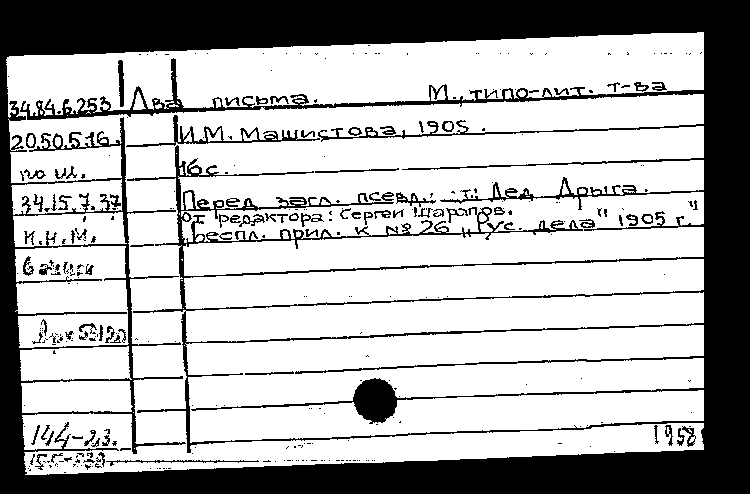 34.84.6.253 Два письма. М., типо-лит. т-ва
20.50.5.16. И.М. Машистова, 1905.
по ш. 16 с.
34.15.7.37 Перед загл. псевд.: Дед Дрыга.
От редактора: Сергей Шарапов.
Н.Н.М. „Беспл. прил. к № 26 „Рус. дела" 1905 г."
144-23.
1958